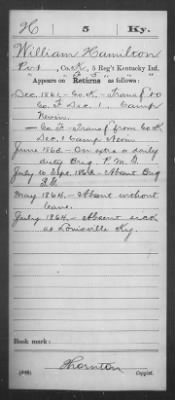 H | 5 | Ky.
William Hamilton
Pvt, Co. K, 5 Reg't Kentucky Inf.
Appears on
Returns as follows:
Dec. 1861 - Co K - Transf to
Co. F Dec. 1. Camp
Nevin.
- Co F - Transf from Co K
Dec. 1 Camp Nevin
June 1863 - On extra or daily
duty Brig. P. M. G.
July to Sept. 1863 - Absent Brig
May 1864 - Absent without
leave.
July 1864 - Absent sick
at Louisville Ky.
Book mark:
Thornton
Copyist.